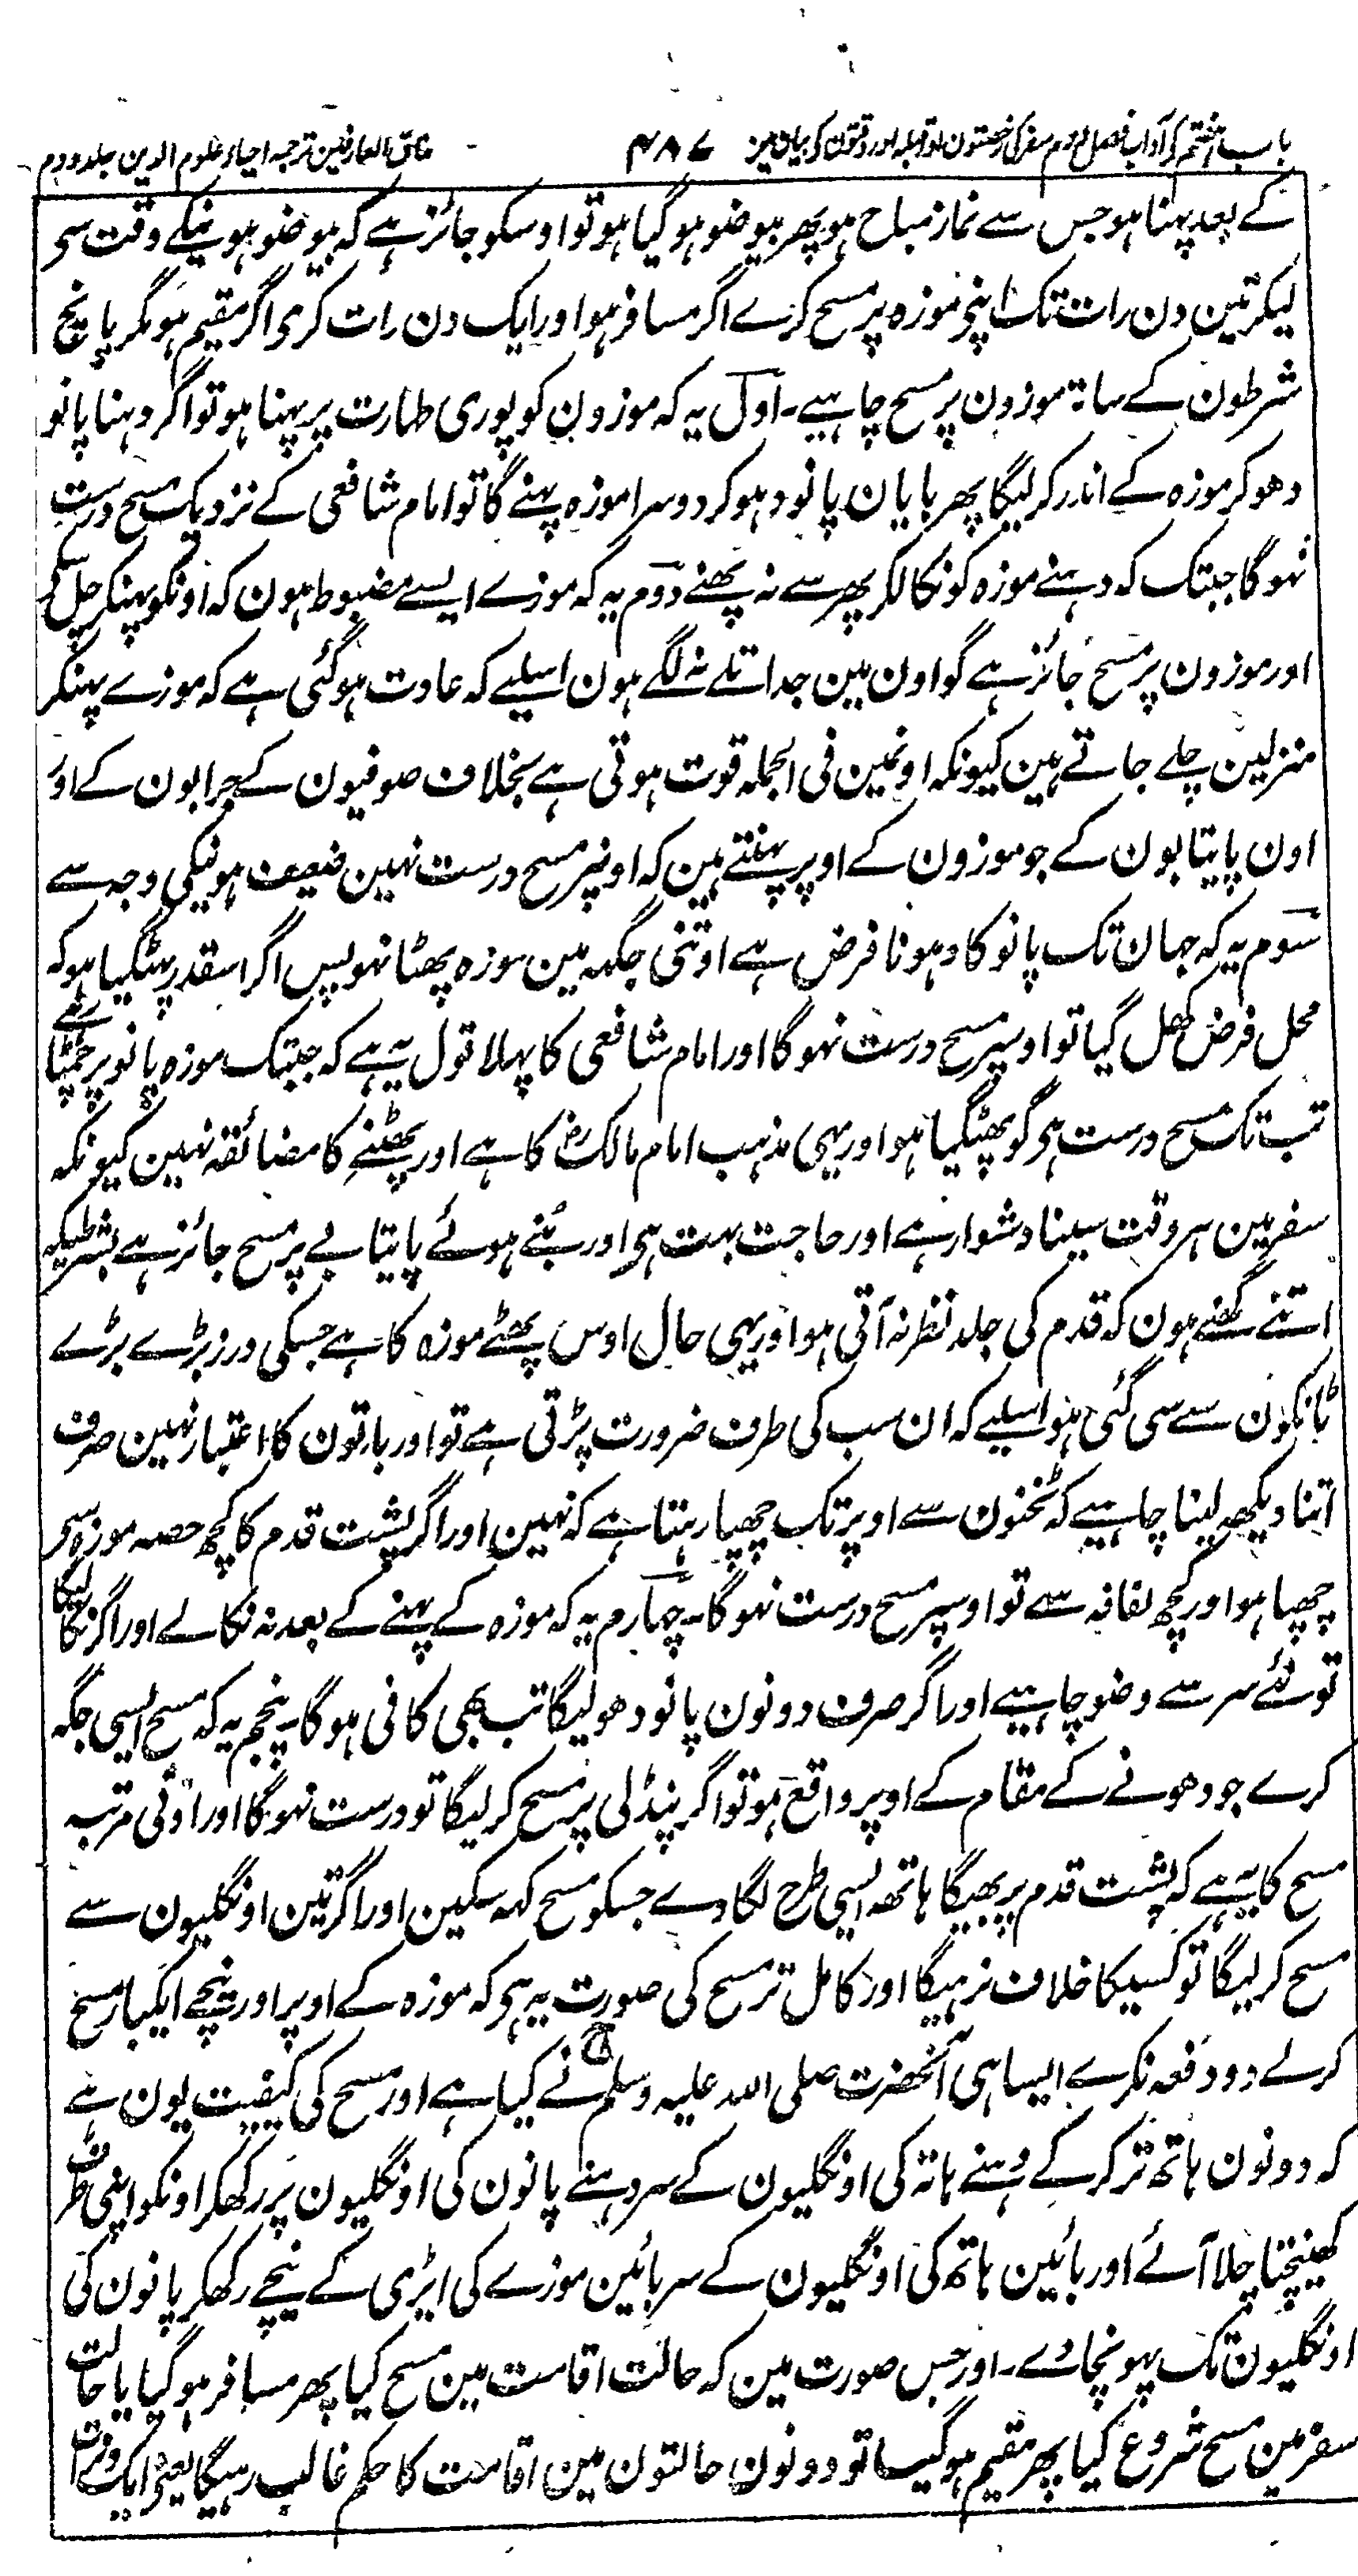 باب ہفتم کے آداب فصل دوم سفر کی رخصتون اور قبلہ اور وقتون کے بیان مین ۴۸۷ مذاق العارفین ترجمہ احیاء علوم الدین جلد دوم
کے بعد پہنا ہو جس سے نماز مباح ہو پھر بیوضو ہو گیا ہو تو اوسکو جائز ہے کہ بیوضو ہونیکے وقت سے
لیکر تین دن رات تک اپنے موزہ پر مسح کرے اگر مسافر ہو اور ایک دن رات کرے اگر مقیم ہو مگر پانچ
شرطون کے ساتھ موزون پر مسح چاہیے۔ اول یہ کہ موزون کو پوری طہارت پر پہنا ہو تو اگر دہنا پانو
دھو کر موزہ کے اندر کر لیگا پھر بایان پانو دہو کر دوسرا موزہ پہنے گا تو امام شافعی کے نزدیک مسح درست
نہوگا جبتک کہ دہنے موزہ کو نکالکر پھر سے نہ پہنے دوم یہ کہ موزے ایسے مضبوط ہون کہ اونکو پہنکر چل سکے
اور موزون پر مسح جائز ہے گو اون مین جدا تلے نہ لگے ہون اسلیے کہ عادت ہو گئی ہے کہ موزے پہنکر
منزلین چلے جاتے ہین کیونکہ اونمین فی الجملہ قوت ہوتی ہے بخلاف صوفیون کے جرابون کے اور
اون پایتابون کے جو موزون کے اوپر پہنتے ہین کہ اونپر مسح درست نہین ضعیف ہونیکی وجہ سے
سوم یہ کہ جہان تک پانو کا دہونا فرض ہے اوتنی جگہہ مین موزہ پھٹا نہو پس اگر اسقدر پھٹگیا ہو کہ
محل فرض کھل گیا تو اوسپر مسح درست نہوگا اور امام شافعی کا پہلا قول یہ ہے کہ جبتک موزہ پانو پر چمٹا رہے
تب تک مسح درست ہی گو پھٹگیا ہو اور یہی مذہب امام مالک رض کا ہے اور پھٹنے کا مضائقہ نہین کیونکہ
سفر مین ہر وقت سینا دشوار ہے اور حاجت بہت ہی اور بُنے ہوئے پایتابے پر مسح جائز ہے بشرطیکہ
اتنے گھنے ہون کہ قدم کی جلد نظر نہ آتی ہو اور یہی حال اوس پھٹے موزہ کا ہے جسکی درز بڑے بڑے
ٹانکون سے سی گئی ہو اسلیے کہ ان سب کی طرف ضرورت پڑتی ہے تو اور باتون کا اعتبار نہین صرف
اتنا دیکھ لینا چاہیے کہ ٹخنون سے اوپر تک چھپا رہتا ہے کہ نہین اور اگر پشت قدم کا کچھ حصہ موزہ سے
چھپا ہو اور کچھ لفافہ سے تو اوسپر مسح درست نہوگا۔ چہارم یہ کہ موزہ کے پہنے کے بعد نہ نکالے اور اگر نکالیگا
تو نئے سر سے وضو چاہیے اور اگر صرف دونون پانو دھو لیگا تب بھی کافی ہوگا۔ پنجم یہ کہ مسح ایسی جگہ
کرے جو دھونے کے مقام کے اوپر واقع ہو تو اگر پنڈلی پر مسح کر لیگا تو درست نہوگا اور ادنی مرتبہ
مسح کا یہ ہے کہ پشت قدم پر بھیگا ہاتھ ایسی طرح لگا دے جسکو مسح کہہ سکین اور اگر تین اونگلیون سے
مسح کر لیگا تو کسیکا خلاف نرہیگا اور کامل تر مسح کی صورت یہ ہی کہ موزہ کے اوپر اور نیچے ایکبار مسح
کرلے دو دفعہ نکرے ایسا ہی آنحضرت صلی اللہ علیہ وسلم نے کیا ہے اور مسح کی کیفیت یون ہے
کہ دونون ہاتھ تر کر کے دہنے ہاتہ کی اونگلیون کے سر دہنے پانون کی اونگلیون پر رکھکر اونکو اپنی طرف
کھینچتا چلا آئے اور بائین ہاتھ کی اونگلیون کے سر بائین موزے کی ایڑی کے نیچے رکھکر پانون کی
اونگلیون تک پہونچا دے۔ اور جس صورت مین کہ حالت اقامت مین مسح کیا پھر مسافر ہو گیا یا حالت
سفر مین مسح شروع کیا پھر مقیم ہو گیا تو دونون حالتون مین اقامت کا حکم غالب رہیگا یعنی ایک